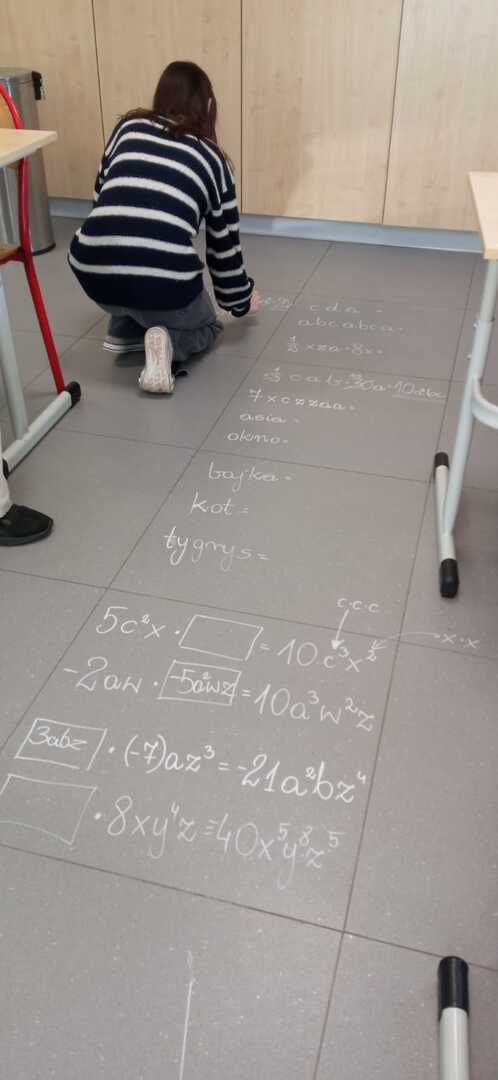 cda =
abcabca =
1/3 xza · 8x =
7xczzaa =
asia =
okno =
bajka =
kot =
tygrys =
c·c·c
5c²x · = 10c³x² x·x
-2aw · -5a²wz = 10a³w²z
3abz · (-7)az³ = -21a²bz⁴
· 8xy⁴z = -40x⁵y⁸z⁵